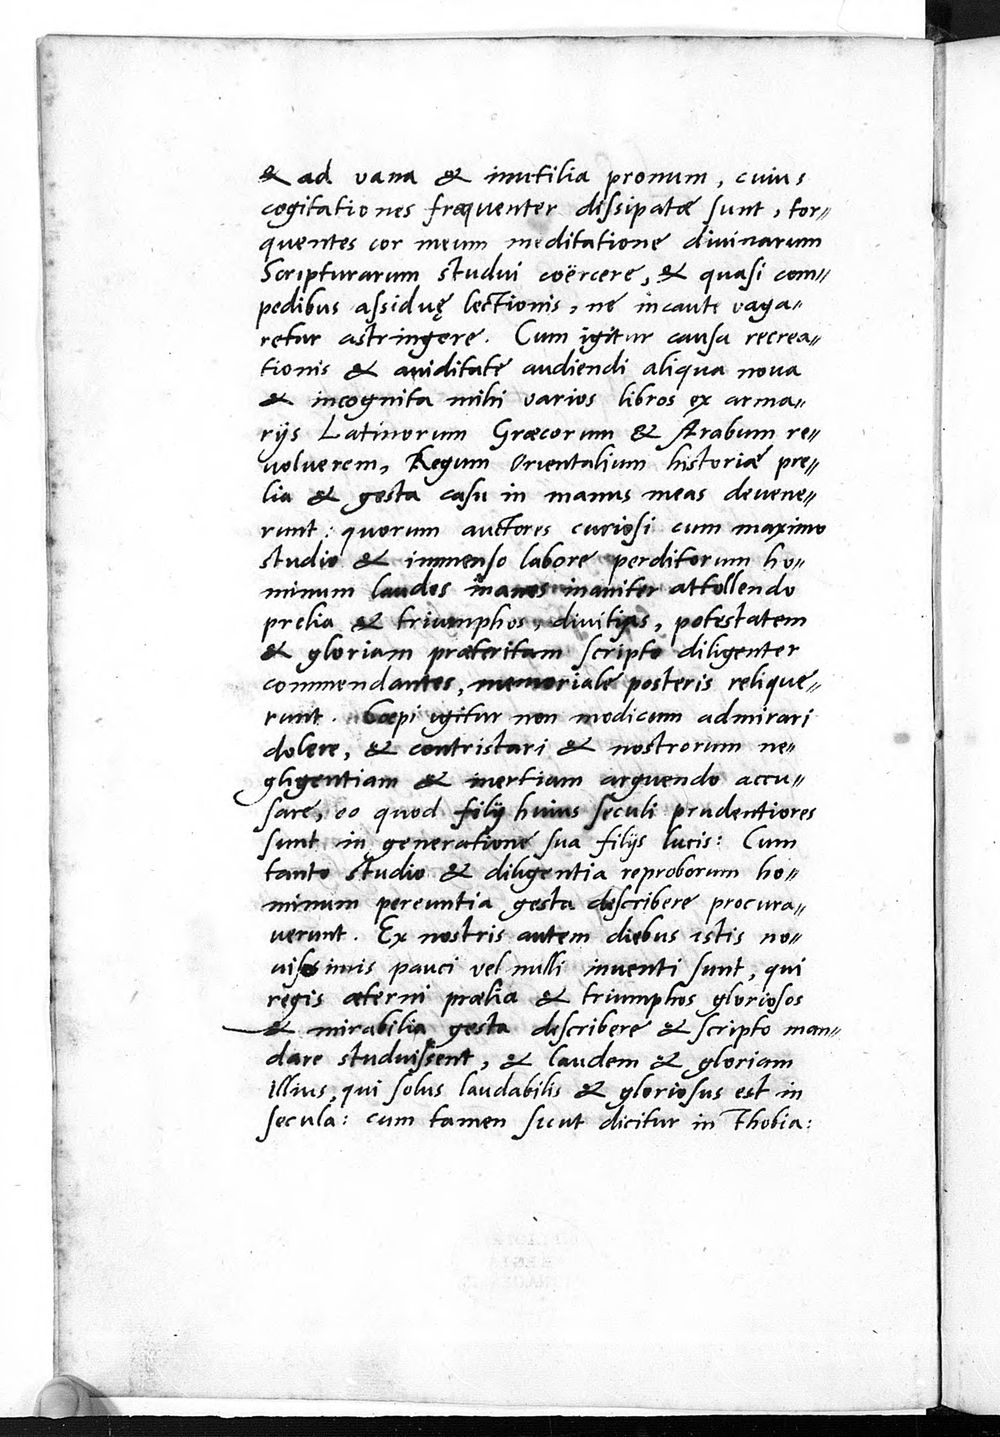 & ad vana & inutilia pronum, cuius
cogitationes fræquenter dissipatæ sunt, tor=
quentes cor meum meditatione divinarum
Scripturarum studui coërcere, & quasi com=
pedibus assiduę lectionis, ne incaute vaga=
retur astringere. Cum igitur causa recrea=
tionis & aviditate audiendi aliqua nova
& incognita mihi varios libros ex arma=
rijs Latinorum Græcorum & Arabum re=
volverem, Regum Orientalium historiæ pre=
lia & gesta casu in manus meas devene=
runt: quorum auctores curiosi cum maximo
studio & immenso labore perditorum ho=
minum laudes inanes inaniter attollendo
prelia & triumphos, divitias, potestatem
& gloriam præteritam scripto diligenter
commendantes, memoriale posteris relique=
runt. Cæpi igitur non modicum admirari
dolere, & contristari & nostrorum ne=
gligentiam & inertiam arguendo accu=
sare, eo quod filij huius seculi prudentiores
sunt in generatione sua filijs lucis: Cum
tanto studio & diligentia reproborum ho=
minum pereuntia gesta describere procura=
verunt. Ex nostris autem diebus istis no=
uissimis pauci vel nulli inventi sunt, qui
regis æterni prælia & triumphos gloriosos
& mirabilia gesta describere & scripto man=
dare studuissent, & laudem & gloriam
illius, qui solus laudabilis & gloriosus est in
secula: cum tamen sicut dicitur in Thobia: